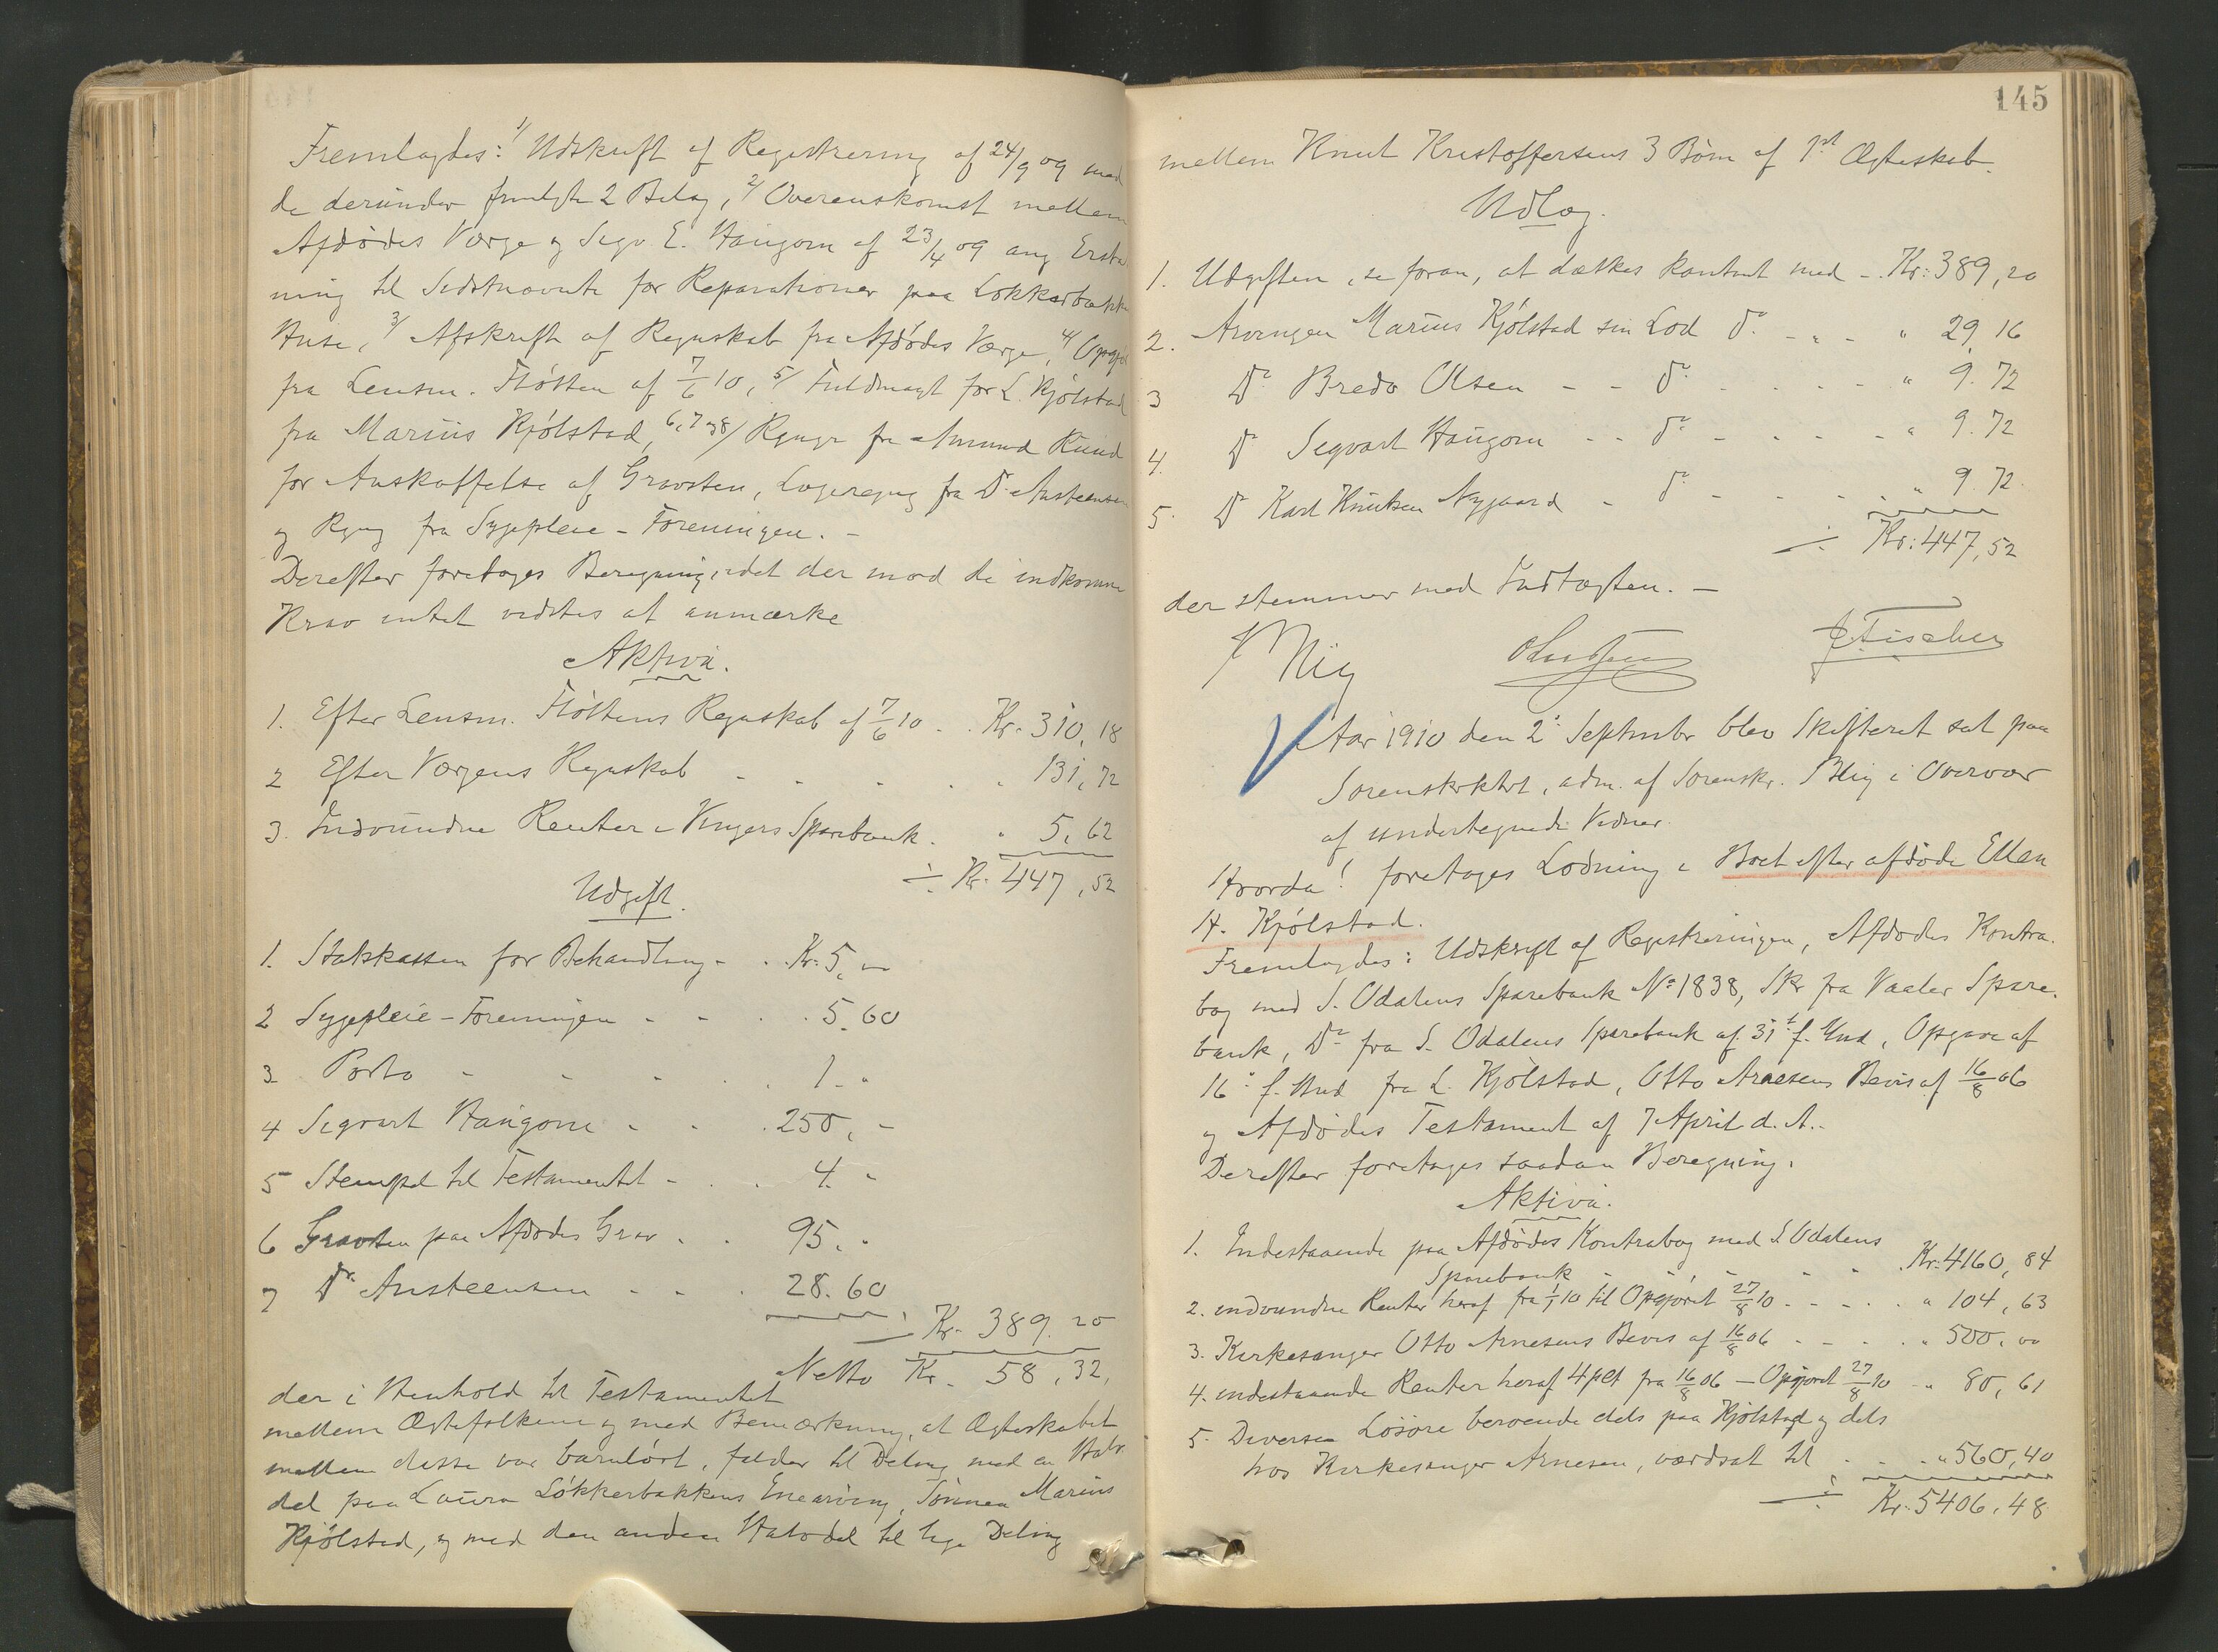 Fremlagdes: 1/ Udskrift af Registrering af 24/9 09 med
de derunder fremlagte 2 Bilag, 2/ Overenskomst mellem
Afdødes Værge og Segv. E. Haugom af 23/4 09 ang Erstat
ning til Sidstnævnte for Reparationer paa Løkkerbakken
Huse, 3/ Afskrift af Regnskab fra Afdødes Værge, 4/ Opgjør
fra Lensm. Fløtten af 7/6 10, 5/ Fuldmagt for L. Kjølstad
fra Marius Kjølstad, 6, 7 og 8/ Regngr fra Amund Ruud
for Anskaffelse af Gravsten, Lægeregng fra Dr Ansteensen
og Regng fra Sygepleie-Foreningen. -
Derefter foretages Beregning, idet der mod de indkomne
Krav intet vidstes at anmærke
Aktiva.
1. Efter Lensm. Fløttens Regnskab af 7/6 10 . . Kr. 310,18
2 Efter Værgens Regnskab - - - . . 131,72
3. Indvundne Renter i Vingers Sparebank. " 5,62
÷ Kr. 447,52
Udgift.
1. Statskassen for Behandling - . Kr: 5,00
2 Sygepleie-Foreningen - - . . 5.60
3 Porto - - - . . 1. "
4 Segvart Haugom - - . 250, -
5 Stempel til Testamentet - . . 4. "
6 Gravsten paa Afdødes Grav . . 95. "
7 Dr Ansteensen - - . 28.60
Kr. 389.20
Netto Kr. 58,32,
der i Henhold til Testamentet
mellem Ægtefolkene og med Bemærkning, at Ægteskabet
mellem disse var barnløst, falder til Deling med en Halv
del paa Laura Løkkerbakkens Enearving, Sønnen Marius
Kjølstad, og med den anden Halvdel til lige Deling
145
mellem Knut Kristoffersens 3 Børn af 1st Ægteskab.
Udlæg.
1. Udgiften, se foran, at dækkes kontant med - Kr: 389,20
2. Arvingen Marius Kjølstad sin Lod do - - - " 29,16
3 Do Bredo Olsen - - do - - - - " 9.72
4. Do Segvart Haugom - - do - - - - " 9.72
5. Do Karl Knutsen Nygaard - do - - - - " 9.72
÷ Kr: 447,52
der stemmer med Indtægten. -
J. Fischer
Aar 1910 den 2. Septembr blev Skifteret sat paa
Sorenskrktrt, adm. af Sorenskr. Blig i Overvær
af undertegnede Vidner.
Hvorda! foretages Lodning i Boet efter afdøde Ellen
H. Kjølstad.
Fremlagdes: Udskrift af Registreringen, Afdødes Kontra.
bog med S. Odalens Sparebank No 1838, Skr fra Vaaler Spare.
bank, Do fra S. Odalens Sparebank af 31t f. Md, Opgave af
16. f. Md fra L. Kjølstad, Otto Arnesens Bevis af 16/8 06
og Afdødes Testament af 7 April d. A..
Derefter foretages saadan Beregning.
Aktiva.
1. Indestaaende paa Afdødes Kontrabog med S. Odalens
Sparebank - - - - - Kr: 4160,84
2. indvundne Renter heraf fra 1/1 10 til Opgjøret 27/8 10 - - - - " 104,63
3. Kirkesanger Otto Arnesens Bevis af 16/8 06 - - - - " 500,00
4. indestaaende Renter heraf 4 pct fra 16/8 06 - Opgjøret 27/8 10 - " 80,61
5. Diverse Løsøre beroende dels paa Kjølstad og dels
hos Kirkesanger Arnesen, værdsat til . . . " 560,40
÷ Kr: 5406.48